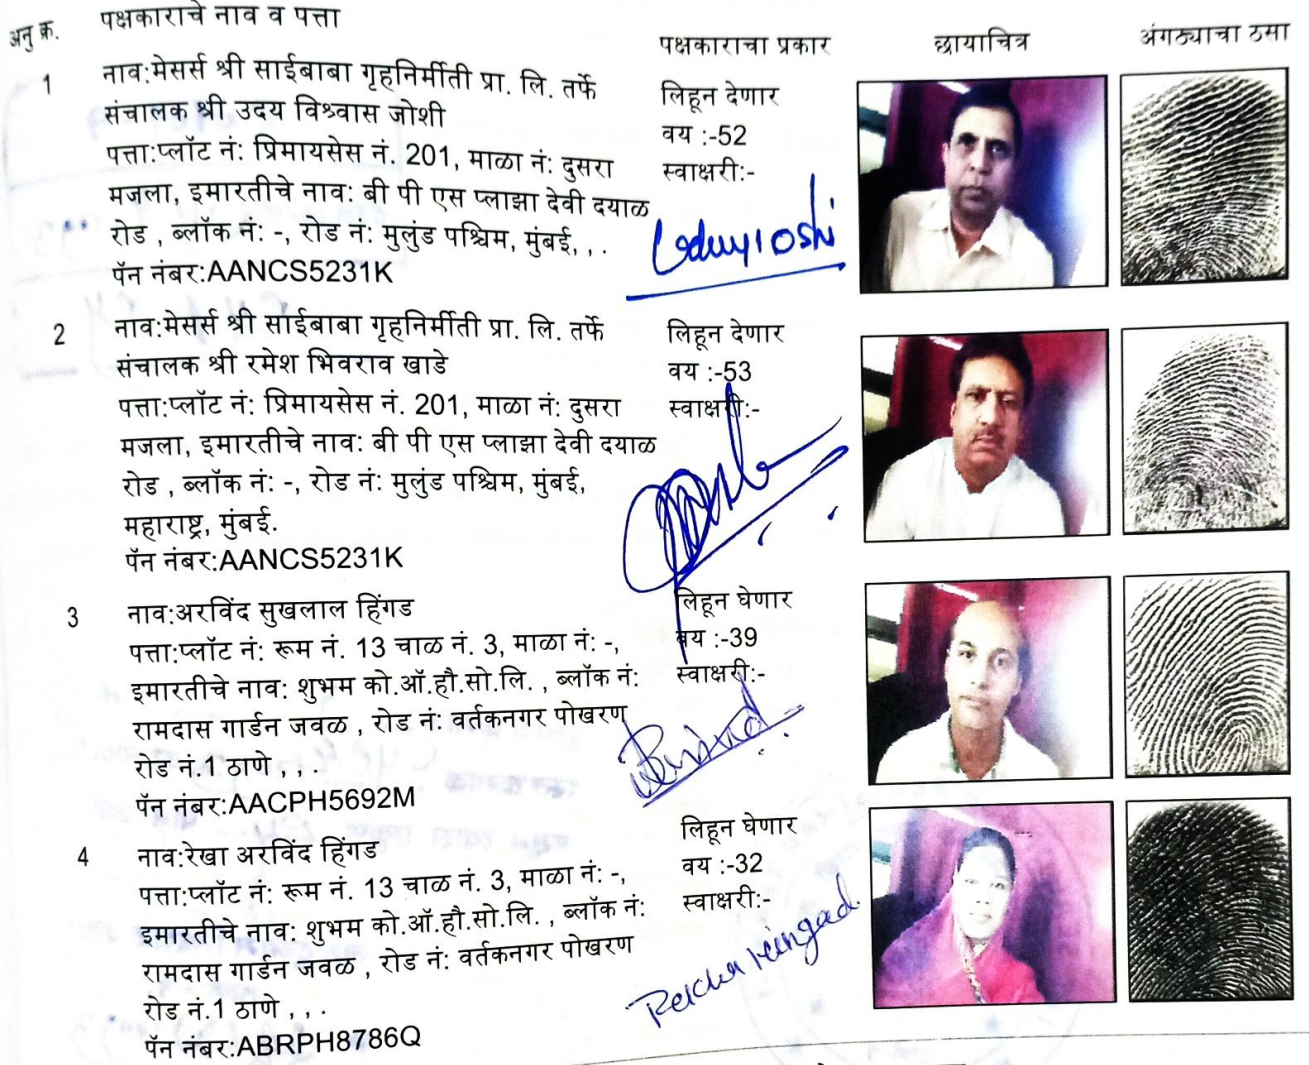 अनु क्र. पक्षकाराचे नाव व पत्ता पक्षकाराचा प्रकार छायाचित्र अंगठ्याचा ठसा
1 नाव:मेसर्स श्री साईबाबा गृहनिर्मीती प्रा. लि. तर्फे
संचालक श्री उदय विश्र्वास जोशी
पत्ता:प्लॉट नं: प्रिमायसेस नं. 201, माळा नं: दुसरा
मजला, इमारतीचे नाव: बी पी एस प्लाझा देवी दयाळ
रोड , ब्लॉक नं: -, रोड नं: मुलुंड पश्चिम, मुंबई, , .
पॅन नंबर:AANCS5231K
लिहून देणार
वय :-52
स्वाक्षरी:-
2 नाव:मेसर्स श्री साईबाबा गृहनिर्मीती प्रा. लि. तर्फे
संचालक श्री रमेश भिवराव खाडे
पत्ता:प्लॉट नं: प्रिमायसेस नं. 201, माळा नं: दुसरा
मजला, इमारतीचे नाव: बी पी एस प्लाझा देवी दयाळ
रोड , ब्लॉक नं: -, रोड नं: मुलुंड पश्चिम, मुंबई,
महाराष्ट्र, मुंबई.
पॅन नंबर:AANCS5231K
लिहून देणार
वय :-53
स्वाक्षरी:-
3 नाव:अरविंद सुखलाल हिंगड
पत्ता:प्लॉट नं: रूम नं. 13 चाळ नं. 3, माळा नं: -,
इमारतीचे नाव: शुभम को.ऑ.हौ.सो.लि. , ब्लॉक नं:
रामदास गार्डन जवळ , रोड नं: वर्तकनगर पोखरण
रोड नं.1 ठाणे , , .
पॅन नंबर:AACPH5692M
लिहून घेणार
वय :-39
स्वाक्षरी:-
4 नाव:रेखा अरविंद हिंगड
पत्ता:प्लॉट नं: रूम नं. 13 चाळ नं. 3, माळा नं: -,
इमारतीचे नाव: शुभम को.ऑ.हौ.सो.लि. , ब्लॉक नं:
रामदास गार्डन जवळ , रोड नं: वर्तकनगर पोखरण
रोड नं.1 ठाणे , , .
पॅन नंबर:ABRPH8786Q
लिहून घेणार
वय :-32
स्वाक्षरी:-
Rekha Hingad